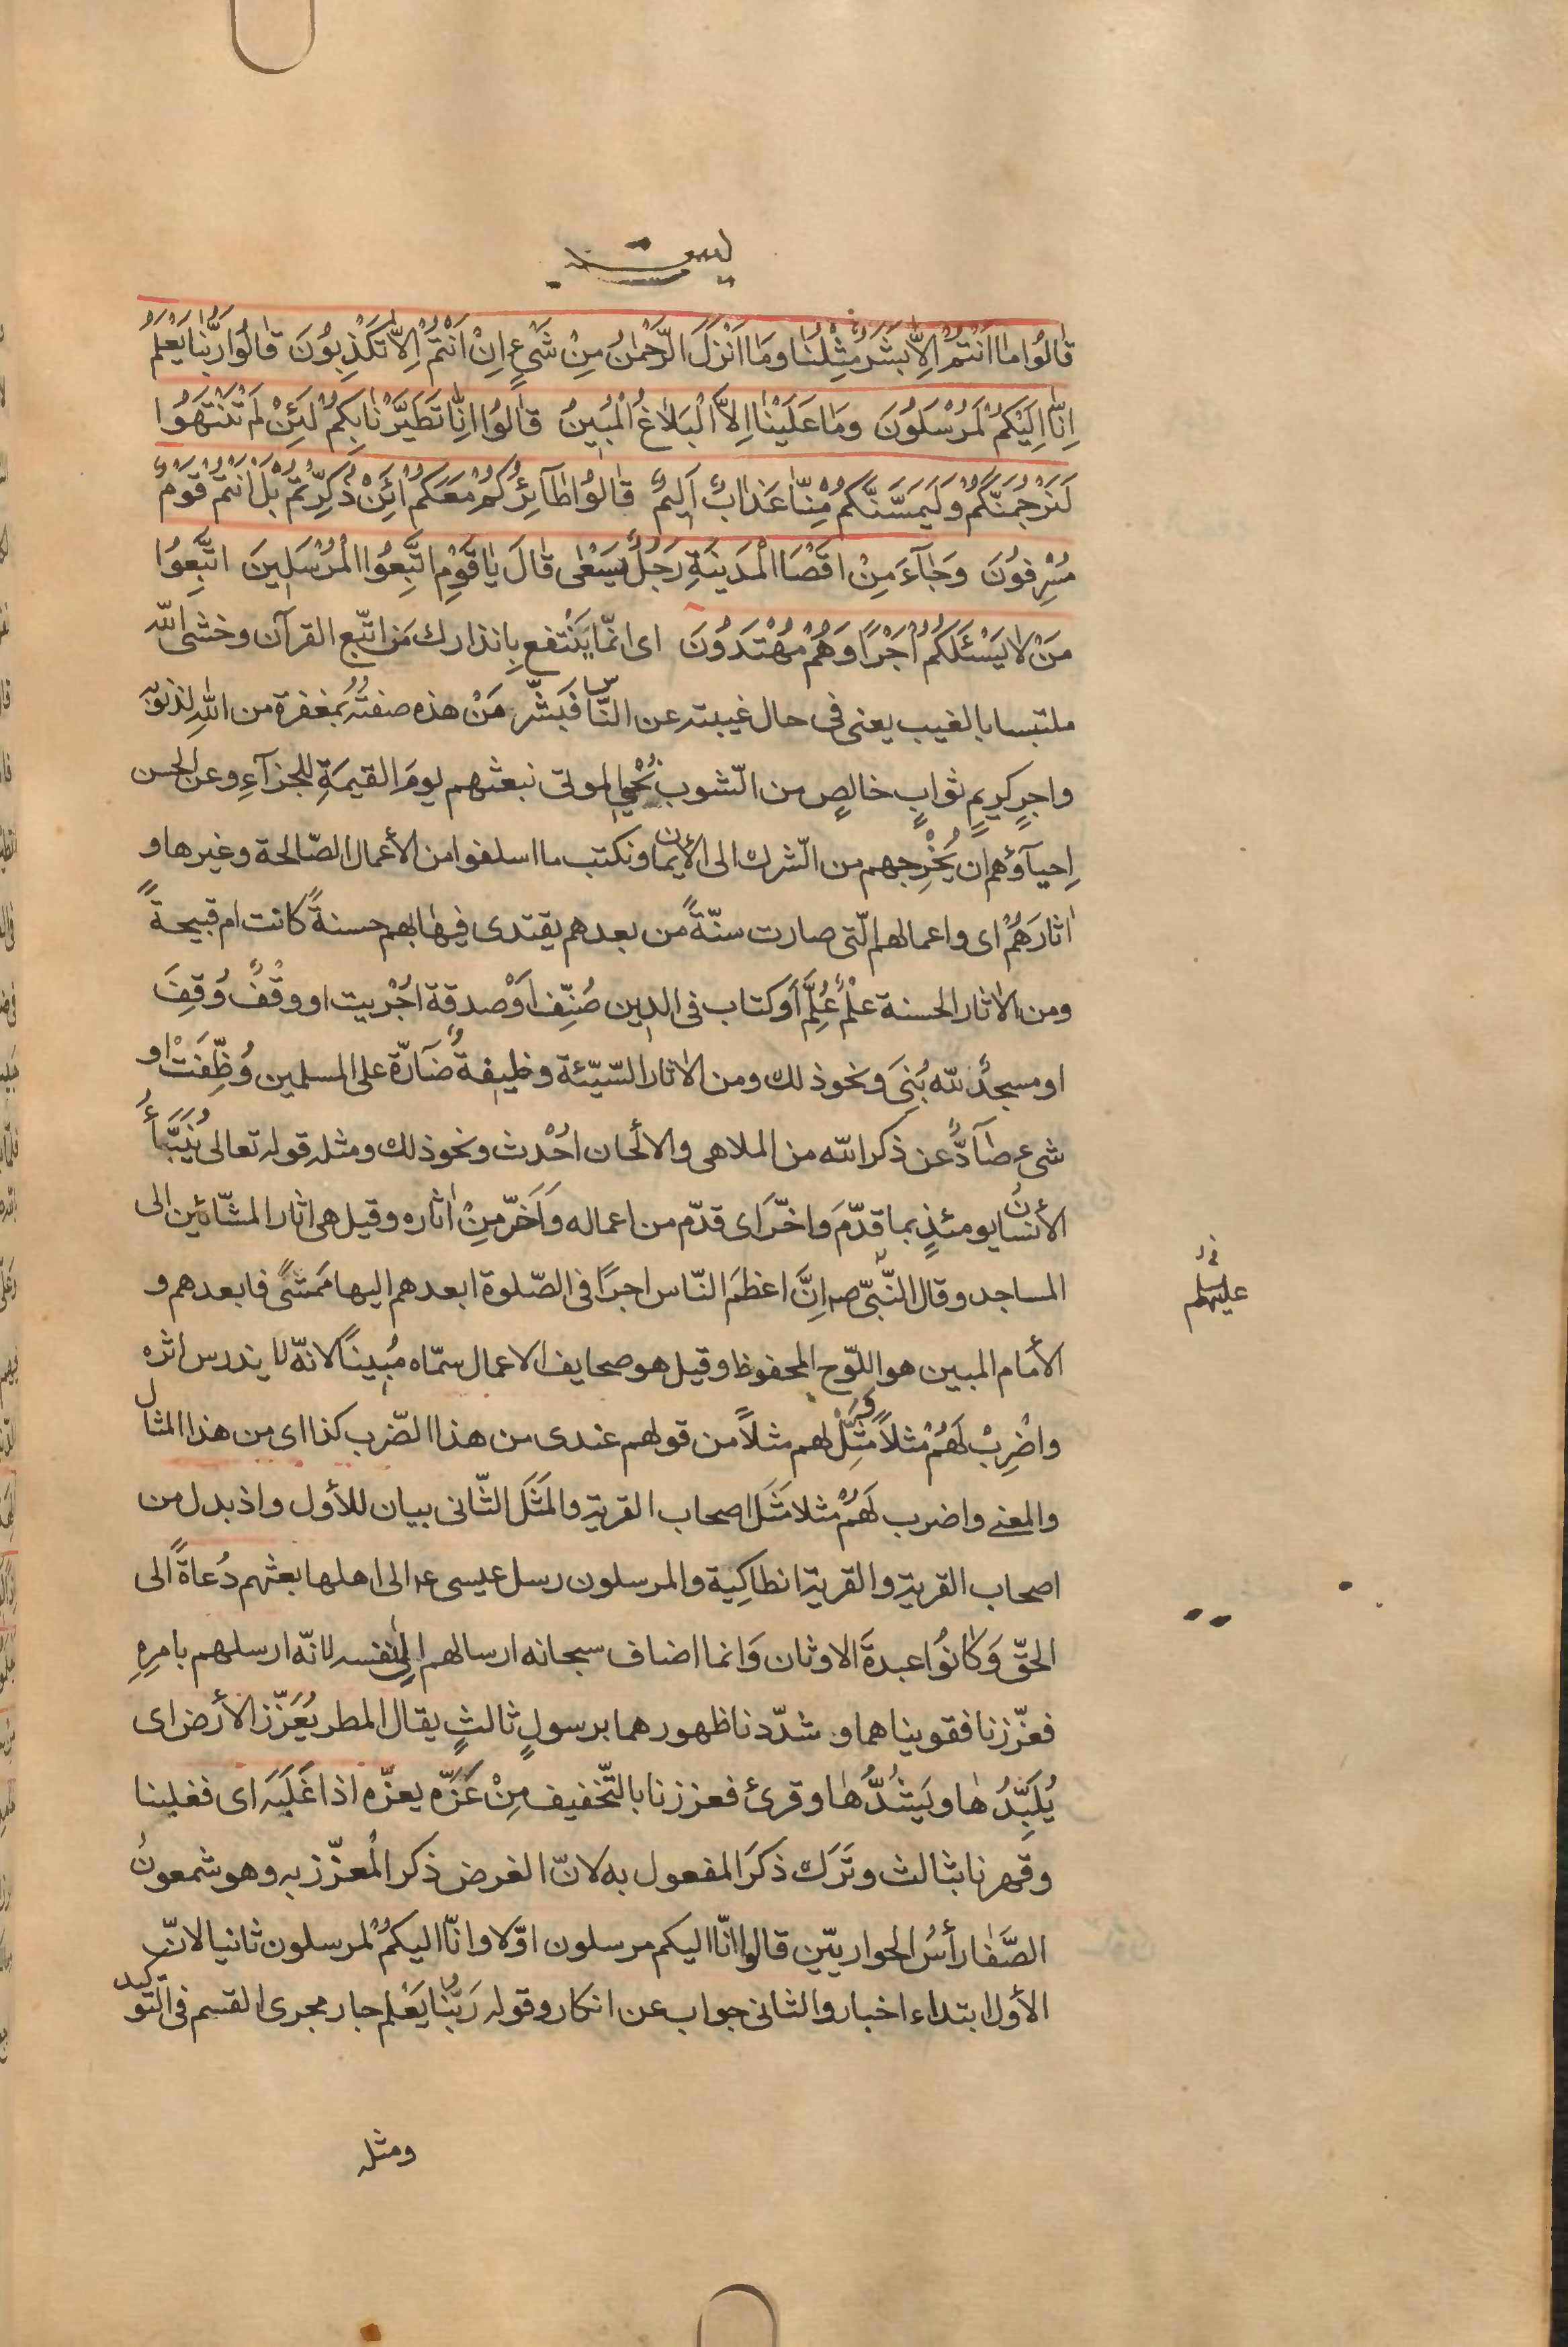 يس
قٰالُوا مٰا اَنْتُمْ اِلاّٰ بَشَرٌ مِثْلُنٰا وَمٰا اَنْزَلَ الرَّحْمٰنُ مِنْ شَيْءٍ اِنْ اَنْتُمْ اِلاّٰ تَكْذِبُونَ قٰالُوا رَبُّنٰا يَعْلَمُ
اِنّٰا اِلَيْكُمْ لَمُرْسَلُونَ وَمٰا عَلَيْنٰا اِلاَّ الْبَلاٰغُ الْمُبِينُ قٰالُوا اِنّٰا تَطَيَّرْنٰا بِكُمْ لَئِنْ لَمْ تَنْتَهُوا
لَنَرْجُمَنَّكُمْ وَلَيَمَسَّنَّكُمْ مِنّٰا عَذٰابٌ اَلِيمٌ قٰالُوا طٰآئِرُكُمْ مَعَكُمْ اَئِنْ ذُكِّرْتُمْ بَلْ اَنْتُمْ قَوْمٌ
مُسْرِفُونَ وَجٰآءَ مِنْ اَقْصَا الْمَدِينَةِ رَجُلٌ يَسْعٰى قٰالَ يٰا قَوْمِ اتَّبِعُوا الْمُرْسَلِينَ اتَّبِعُوا
مَنْ لاٰ يَسْئَلُكُمْ اَجْرًا وَهُمْ مُهْتَدُونَ اى انّما يَنْتفع بِانذارك مَن اتّبع القرآن وخشى اللّه
ملتبسا بالغيب يعنى فى حال غيبته عن النّاس فَبَشّر مَنْ هذه صفتُهُ بمغفرة من اللّهِ لذنوبه
واجرٍ كريمٍ ثوابٍ خالصٍ من الشّوب نُحْيِ الموتى نبعثهم يومَ القيمَةِ للجزآءِ وعن الحسن
اِحيآؤهم ان يُخْرِجهم من الشّرك الى الأيمان ونكتب ما اسلفوا من الأعمال الصّالحة وغيرها و
اٰثارَهُمْ اى واعمالهم الّتى صارت سنّةً من بعدهم يقتدى فيها بهم حسنةً كانت ام قبيحةً
ومن الاٰثار الحسنة عِلْمٌ عُلِّمَ اَوْ كتاب فى الدين صُنِّف اَوْ صدقة اجْريت او وقْفٌ وُقِفَ
او مسجدٌ للّه بُنِىَ ونحو ذلك ومن الاٰثار السّيّئة وظيفةٌ ضآرّة على المسلمين وُظِّفَتْ او
شىء ضآدٌّ عن ذكر اللّه من الملاهى والألحان احُدْث ونحو ذلك ومثله قوله تعالى يُنَبَّأُ
الأنسانُ يومئذٍ بما قدّمَ واخّرَ اى قدّم من اعماله وَاَخّر مِنْ اٰثاره وقيل هى اثار المشّائين الى
المساجد وقال النّبىّ صم اِنَّ اعظمَ النّاس اجرًا فى الصّلوة ابعدهم اليها مَمشىً فابعدهم و
الأمام المبين هو اللّوح المحفوظ وقيل هو صحايف الاعمال سمّاه مُبِينًا لانّه لا يندرس اثره
واضْرِبْ لَهُمْ مثلاً وَمَثِّلْ لهم مثلاً من قولهم عندى من هذا الضّرب كذا اى من هذا المثال
والمعنى واضرب لَهُمْ مثلا مَثَلَ اصحاب القرية والمَثَلَ الثّانى بيان للأول واذ بدل من
اصحاب القرية والقرية انطاكِية والمرسلون رسل عيسى عم الى اهلها بعثهم دُعاةً الى
الحقّ وَكانُوا عبدةَ الاوثان وَانما اضاف سبحانه ارسالهم الى نفسه لانّه ارسلهم بامرِهِ
فعزّزنا فقويناهما و شدّدنا ظهورهما برسولٍ ثالثٍ يقال المطر يُعَزِّز الأرض اى
يُلَبِّدُ هٰا ويَشُدُّهٰا وقرئ فعززنا بالتّخفيف مِنْ عَزّه يعزّه اذا غَلَبَه اى فغلبنا
وقهرنا بثالث وتَرَك ذكرَ المفعول به لانّ الغرض ذكر المُعزّز به وهو شمعونُ
الصَّفٰا رأسُ الحواريّين قالوا انّا اليكم مرسلون اوّلا وانّا اليكُمْ لمرسلون ثانيا لانّ
الأول ابتداء اخبار والثانى جواب عن انكار وقوله رَبُّنٰا يَعْلم جار مجرى القسم فى التّوكيد
ومثله